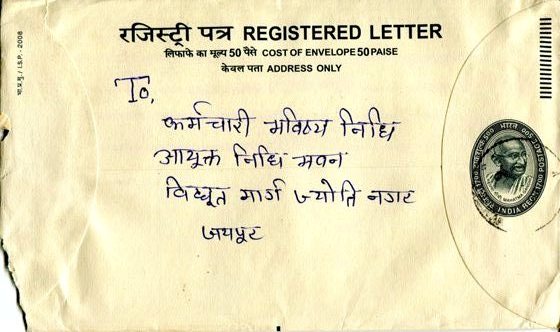 रजिस्ट्री पत्र REGISTERED LETTER
लिफाफे का मूल्य 50 पैसे COST OF ENVELOPE 50 PAISE
केवल पता ADDRESS ONLY
To,
कर्मचारी भविष्य निधि
आयुक्त निधि भवन
विद्युत मार्ग ज्योति नगर
जयपुर
भारत
INDIA REGN 1700 POSTAGE
I.S.P. - 2008